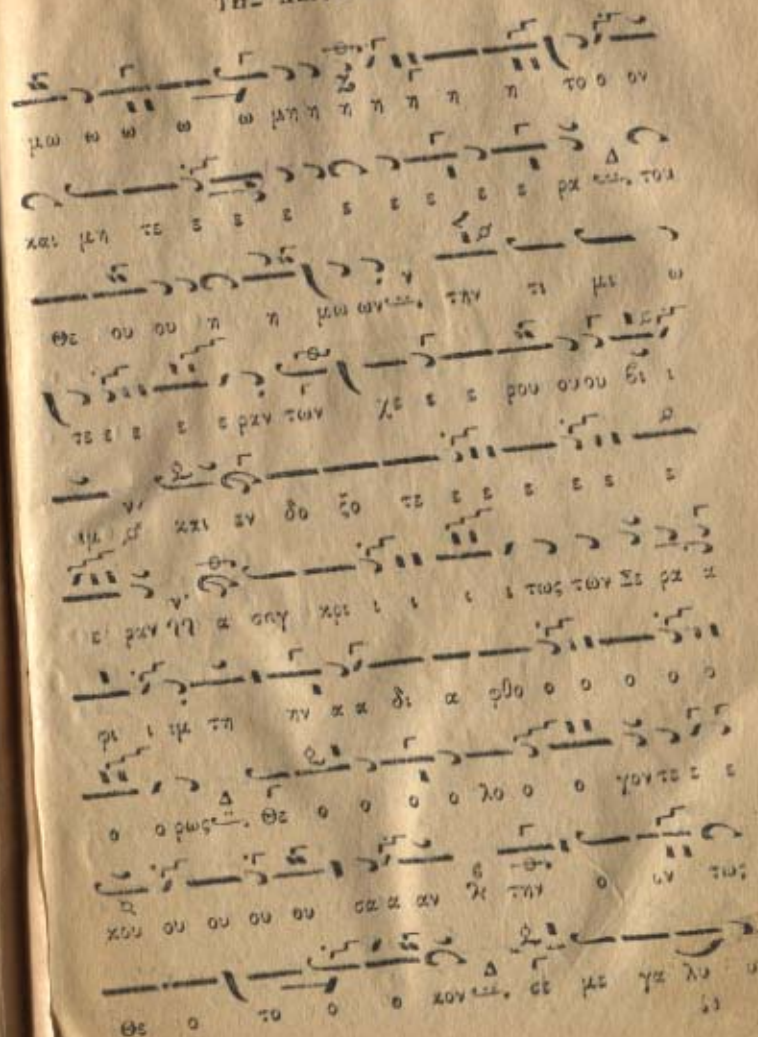 μω ω ω ω ω μηη η η η η η η το ο ον
και μη τε ε ε ε ε ε ε ε ρα του
Θε ου ου ου η η μω ων την τι μι ω
τε ε ε ε ε ε ραν των Χε ε ε ρου ουου βι ι
ιμ και εν δο ξο τε ε ε ε ε ε ε
ε ραν α συγ κρι ι ι ι ι τως των Σε ρα α
φι ι ιμ τη ην α α δι α φθο ο ο ο ο ο
ο ο ρως Θε ο ο ο ο λο ο ο γον τε ε ε
κου ου ου ου ου σα α α αν την ο ον τως
Θε ο ο το ο ο ο κον σε ε με γα λυ υ